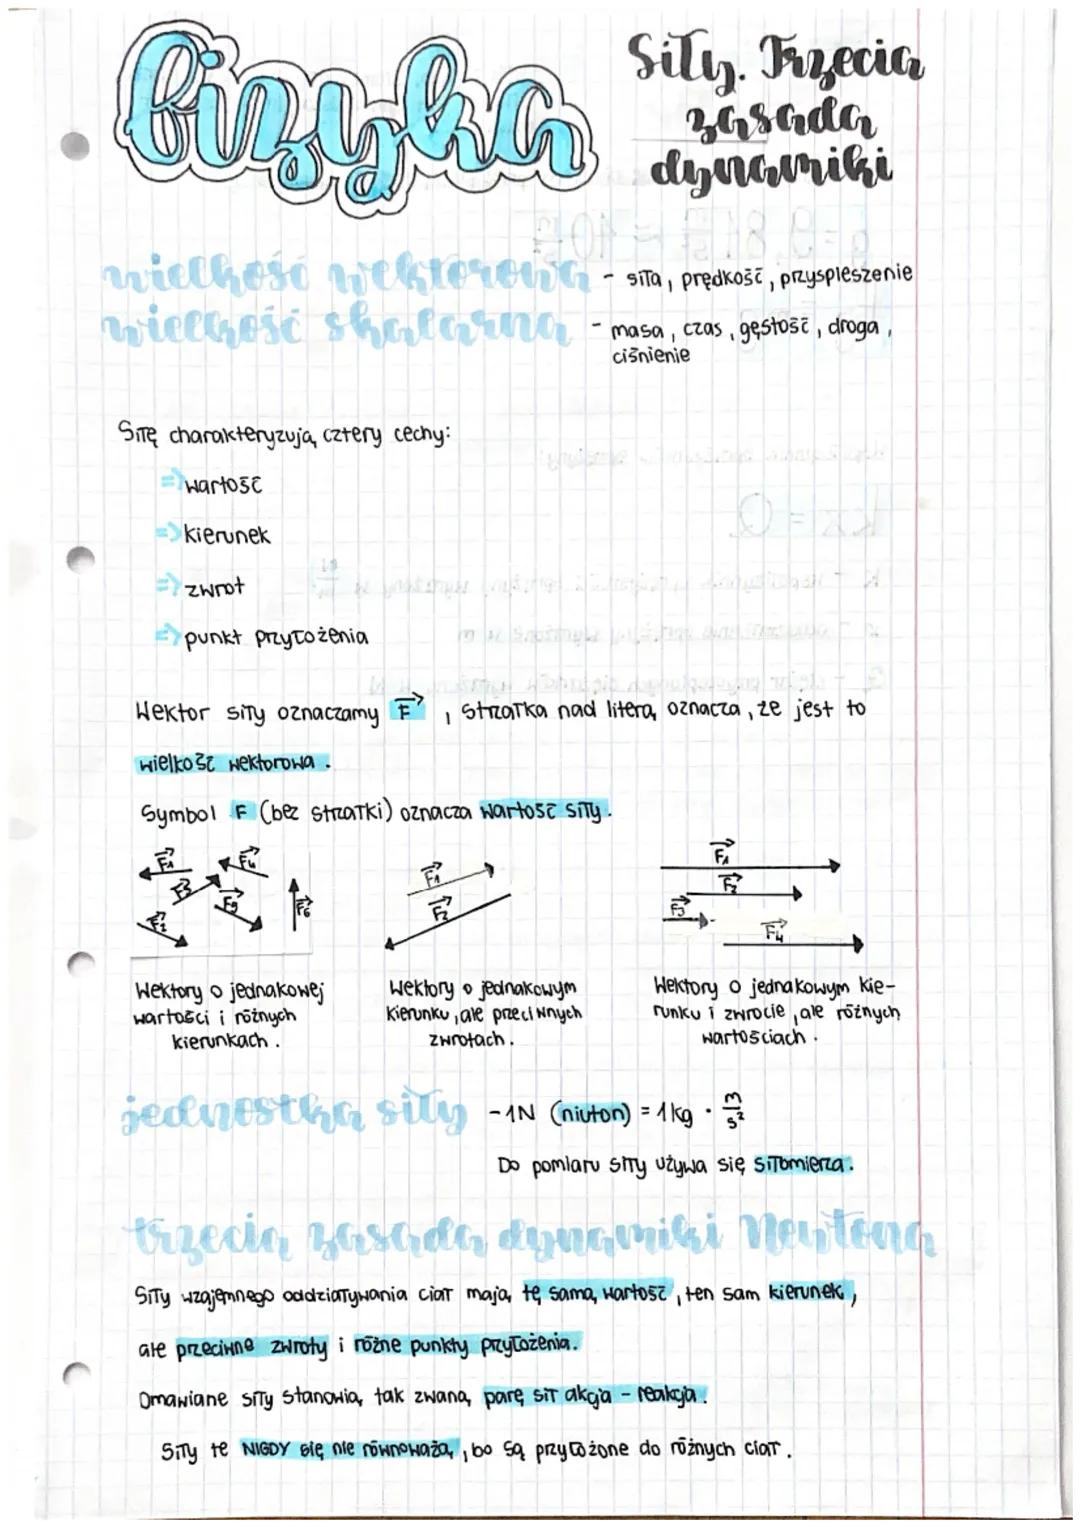 fizyka
Siły. Trzecia
zasada
dynamiki
wielkość wektorowa - siła, prędkość, przyspieszenie
wielkość skalarna - masa, czas, gęstość, droga,
ciśnienie
Siłę charakteryzują cztery cechy:
=> wartość
=> kierunek
=> zwrot
=> punkt przyłożenia
Wektor siły oznaczamy F→, strzałka nad literą oznacza, że jest to
wielkość wektorowa.
Symbol F (bez strzałki) oznacza wartość siły.
F1 F4 F3 F5 F2 F6
F1 F2
F1 F2 F3 F4
Wektory o jednakowej
wartości i różnych
kierunkach.
Wektory o jednakowym
kierunku, ale przeciwnych
zwrotach.
Wektory o jednakowym kie-
runku i zwrocie, ale różnych
wartościach.
jednostka siły - 1N (niuton) = 1kg · m/s²
Do pomiaru siły używa się siłomierza.
trzecia zasada dynamiki Newtona
Siły wzajemnego oddziaływania ciał mają tę samą wartość, ten sam kierunek,
ale przeciwne zwroty i różne punkty przyłożenia.
Omawiane siły stanowią tak zwaną parę sił akcja - reakcja.
Siły te NIGDY się nie równoważą, bo są przyłożone do różnych ciał.